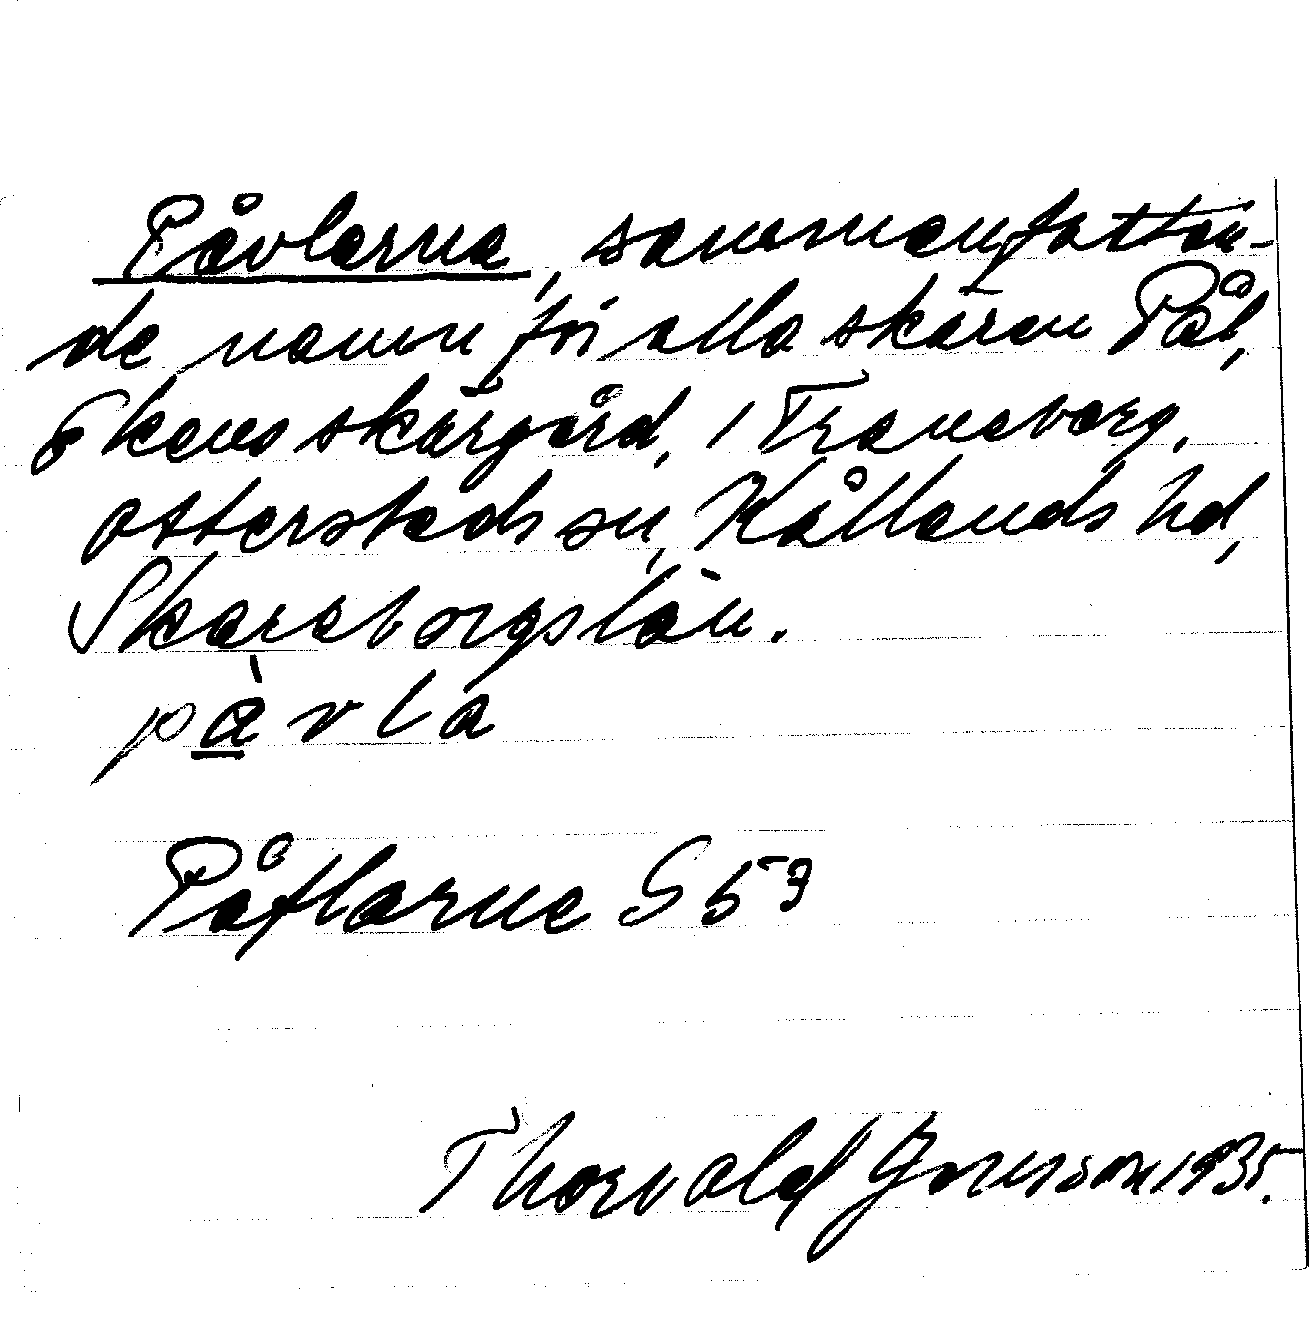 Påvlarna, sammanfattan-
de namn för alla skären Pål,
Ekens skärgård, i Traneberg.
Otterstads sn, Kållands hd,
Skaraborgs län.
pàvla
Påflarne G 53
Thorvald 1935.